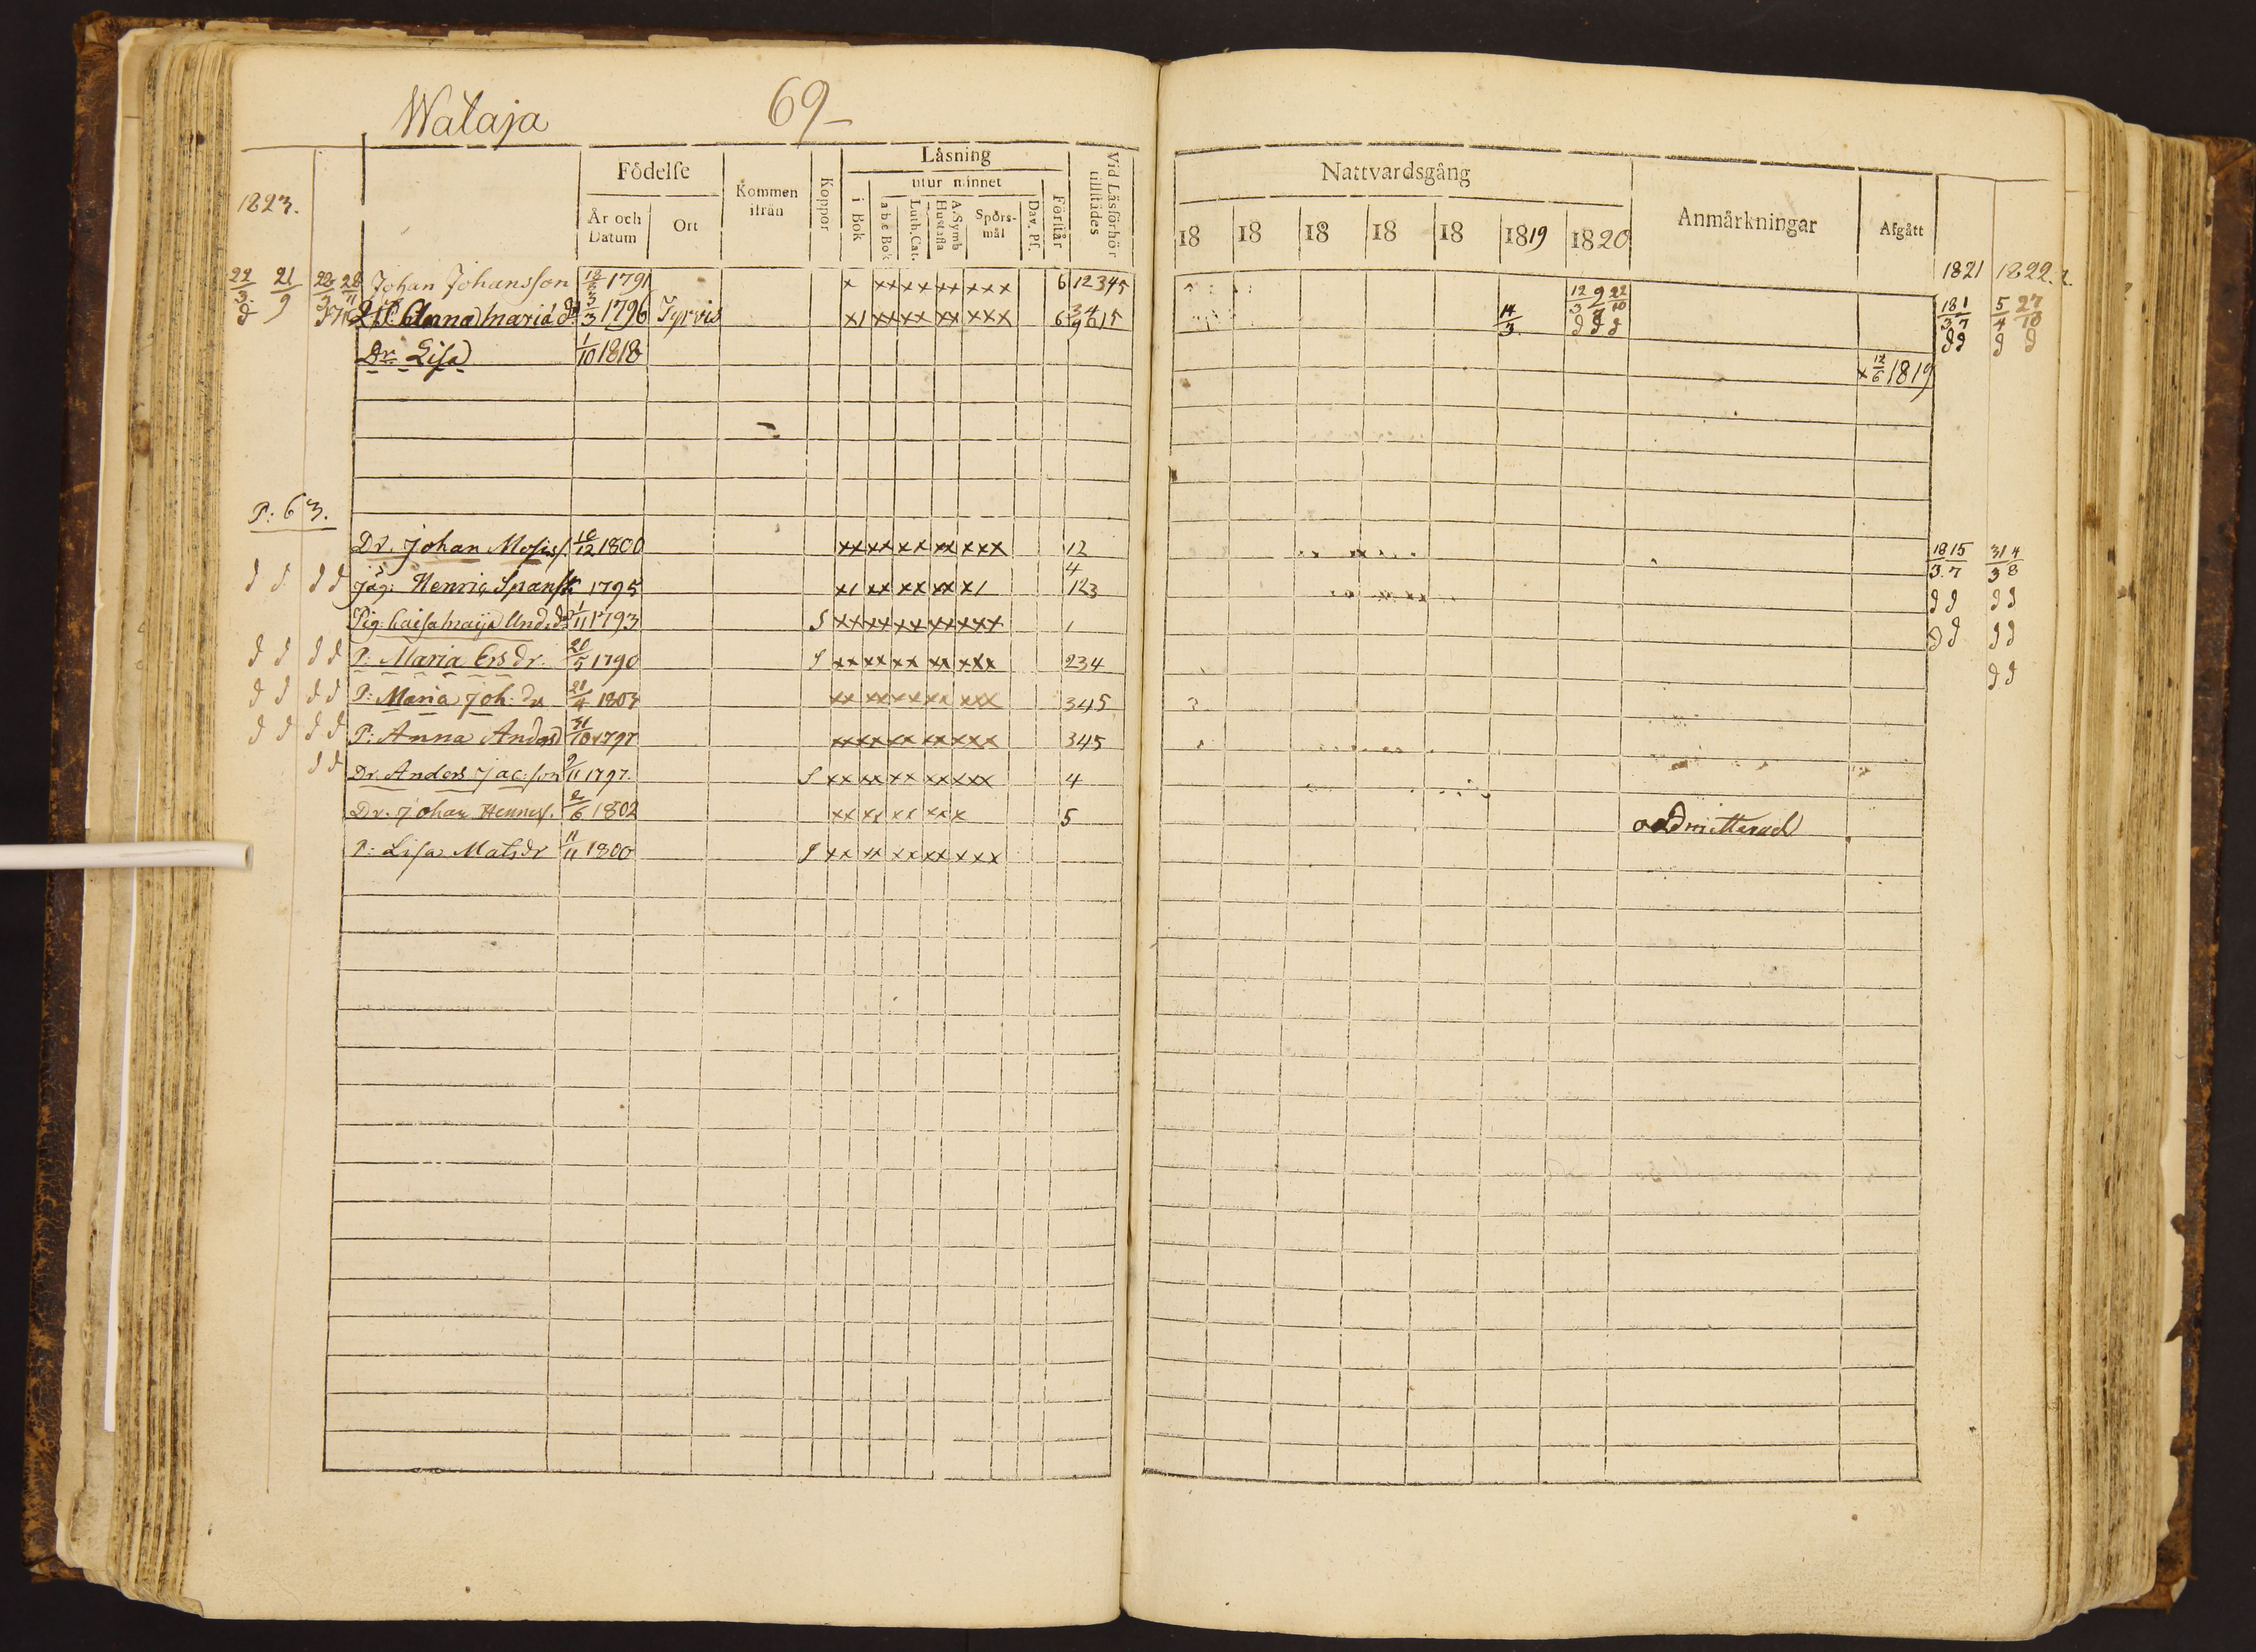 Wataja 69
1823.
Födelse
År och Datum
Ort
Kommen ifrån
Koppor
Läsning
i Bok
utur minnet
a b c Bok
Luth. Cat.
A. Symb Hustafla
Spörsmål
Dav. Ps.
Förstår
Vid Läsförhör tillstädes
Nattvardsgång
18 18 18 18 18 1819 1820
Anmärkningar
Afgått
1821 1822.
22/3 21/9 Johan Johansson 1791 x xx xx xx xxx 6 12345 12/3 9/7 22/10 18/3 1/7 5/4 27/10
Anna Maria 3/3 1796 Tyrvis x1 xx xx xx xxx 6 14/3 d d d d d d d
Dr. Lisa 1/10 1818 x 12/6 1819
P: 63.
Dr. Johan Mosiss. 16/12 1800 xx xx xx xx xxx 12 18/3 15/7 31/3 4/8
d d d d Jäg: Henric Spansk 1795 x1 xx xx xx x1 4 123 d d d d
Pig: Caisa Maija And.dr 1/11 1793 S xx xx xx xx xxx 1 d d d d
d d d d P: Maria Ersdr. 20/5 1790 S xx xx xx xx xxx 234 d d
d d d d P: Maria Joh: dr 21/4 1804 xx xx xx xx xxx 345
d d d d P: Anna And 31/10 1797 xx xx xx xx xxx 345
d d Dr. Anders Jac:son 9/11 1797. S xx xx xx xx xxx 4
Dr. Johan Henness. 2/6 1802 xx xx xx xx x 5 oadmitterad
P: Lisa Matsdr 11/11 1800 S xx xx xx xx xxx